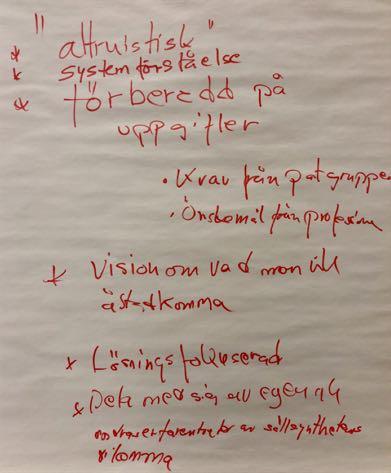 * "altruistisk"
* systemförståelse
* förberedd på
uppgifter
• Krav från patgruppe
• Önskemål från professione
* Vision om vad man vill
åstadkomma
* Lösningsfokuserad
* Dela med sig av egen
av sällsynthetens